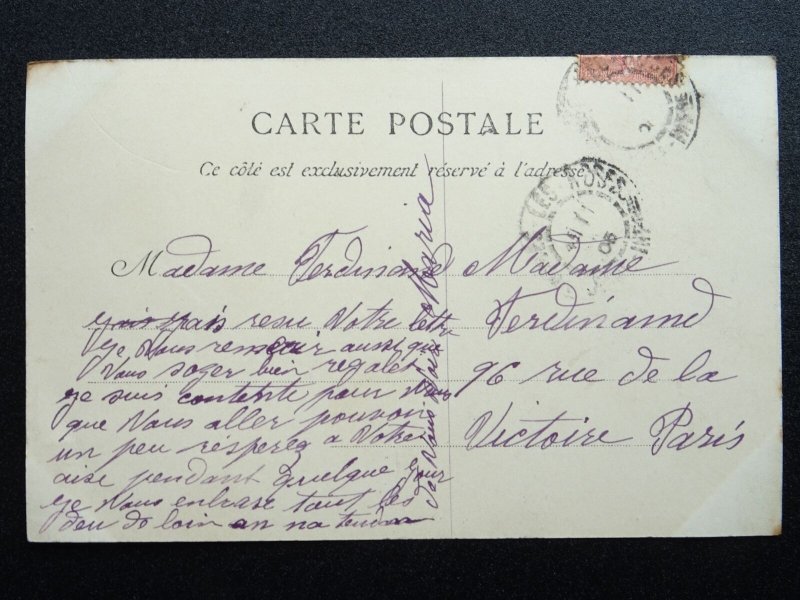 CARTE POSTALE
Ce côté est exclusivement réservé à l'adresse
LES ROSES
11
05
Madame Ferdinand
jais resu Votre lettre
ge Vous remercir aussi que
Vous soger bien regaler
ge suis contente pour Vous
que Vous aller pouvoir
un peu résperer a Votre
aise pendant quelque jour
ge Vous enbrase tout les
deu de loin en
Maria
Madame
Ferdinand
96 rue de la
Victoire Paris